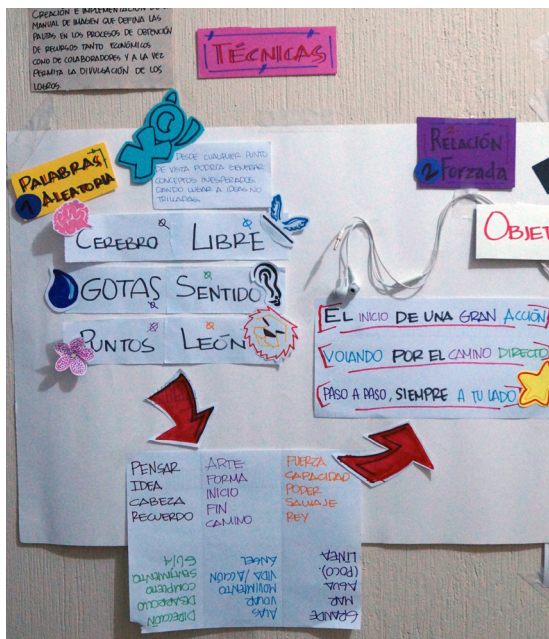 CREACIÓN E IMPLEMENTACIÓN DE
MANUAL DE IMAGEN QUE DEFINA LAS
PAUTAS EN LOS PROCESOS DE OBTENCIÓN
DE RECURSOS TANTO ECONÓMICOS
COMO DE COLABORADORES Y A LA VEZ
PERMITA LA DIVULGACIÓN DE LOS
LOGROS.
TÉCNICAS
PALABRAS
1 ALEATORIA
DESDE CUALQUIER PUNTO
DE VISTA PODRÍA GENERAR
CONCEPTOS INESPERADOS
DANDO LUGAR A IDEAS NO
TRILLADAS.
RELACIÓN
2 Forzada
OBJET
CEREBRO LIBRE
GOTAS SENTIDO
PUNTOS LEÓN
EL INICIO DE UNA GRAN ACCIÓN
VOLANDO POR EL CAMINO DIRECTO
PASO A PASO, SIEMPRE A TU LADO
PENSAR
IDEA
CABEZA
RECUERDO
ARTE
FORMA
INICIO
FIN
CAMINO
FUERZA
CAPACIDAD
PODER
SALVAJE
REY
DIRECCIÓN
DESARROLLO
COMPLETO
SENTIMIENTO
GUÍA
ALAS
VOLAR
MOVIMIENTO
VIDA / ACCIÓN
ÁNGEL
GRANDE
MAR
AGUA
(POCO).
LINEA